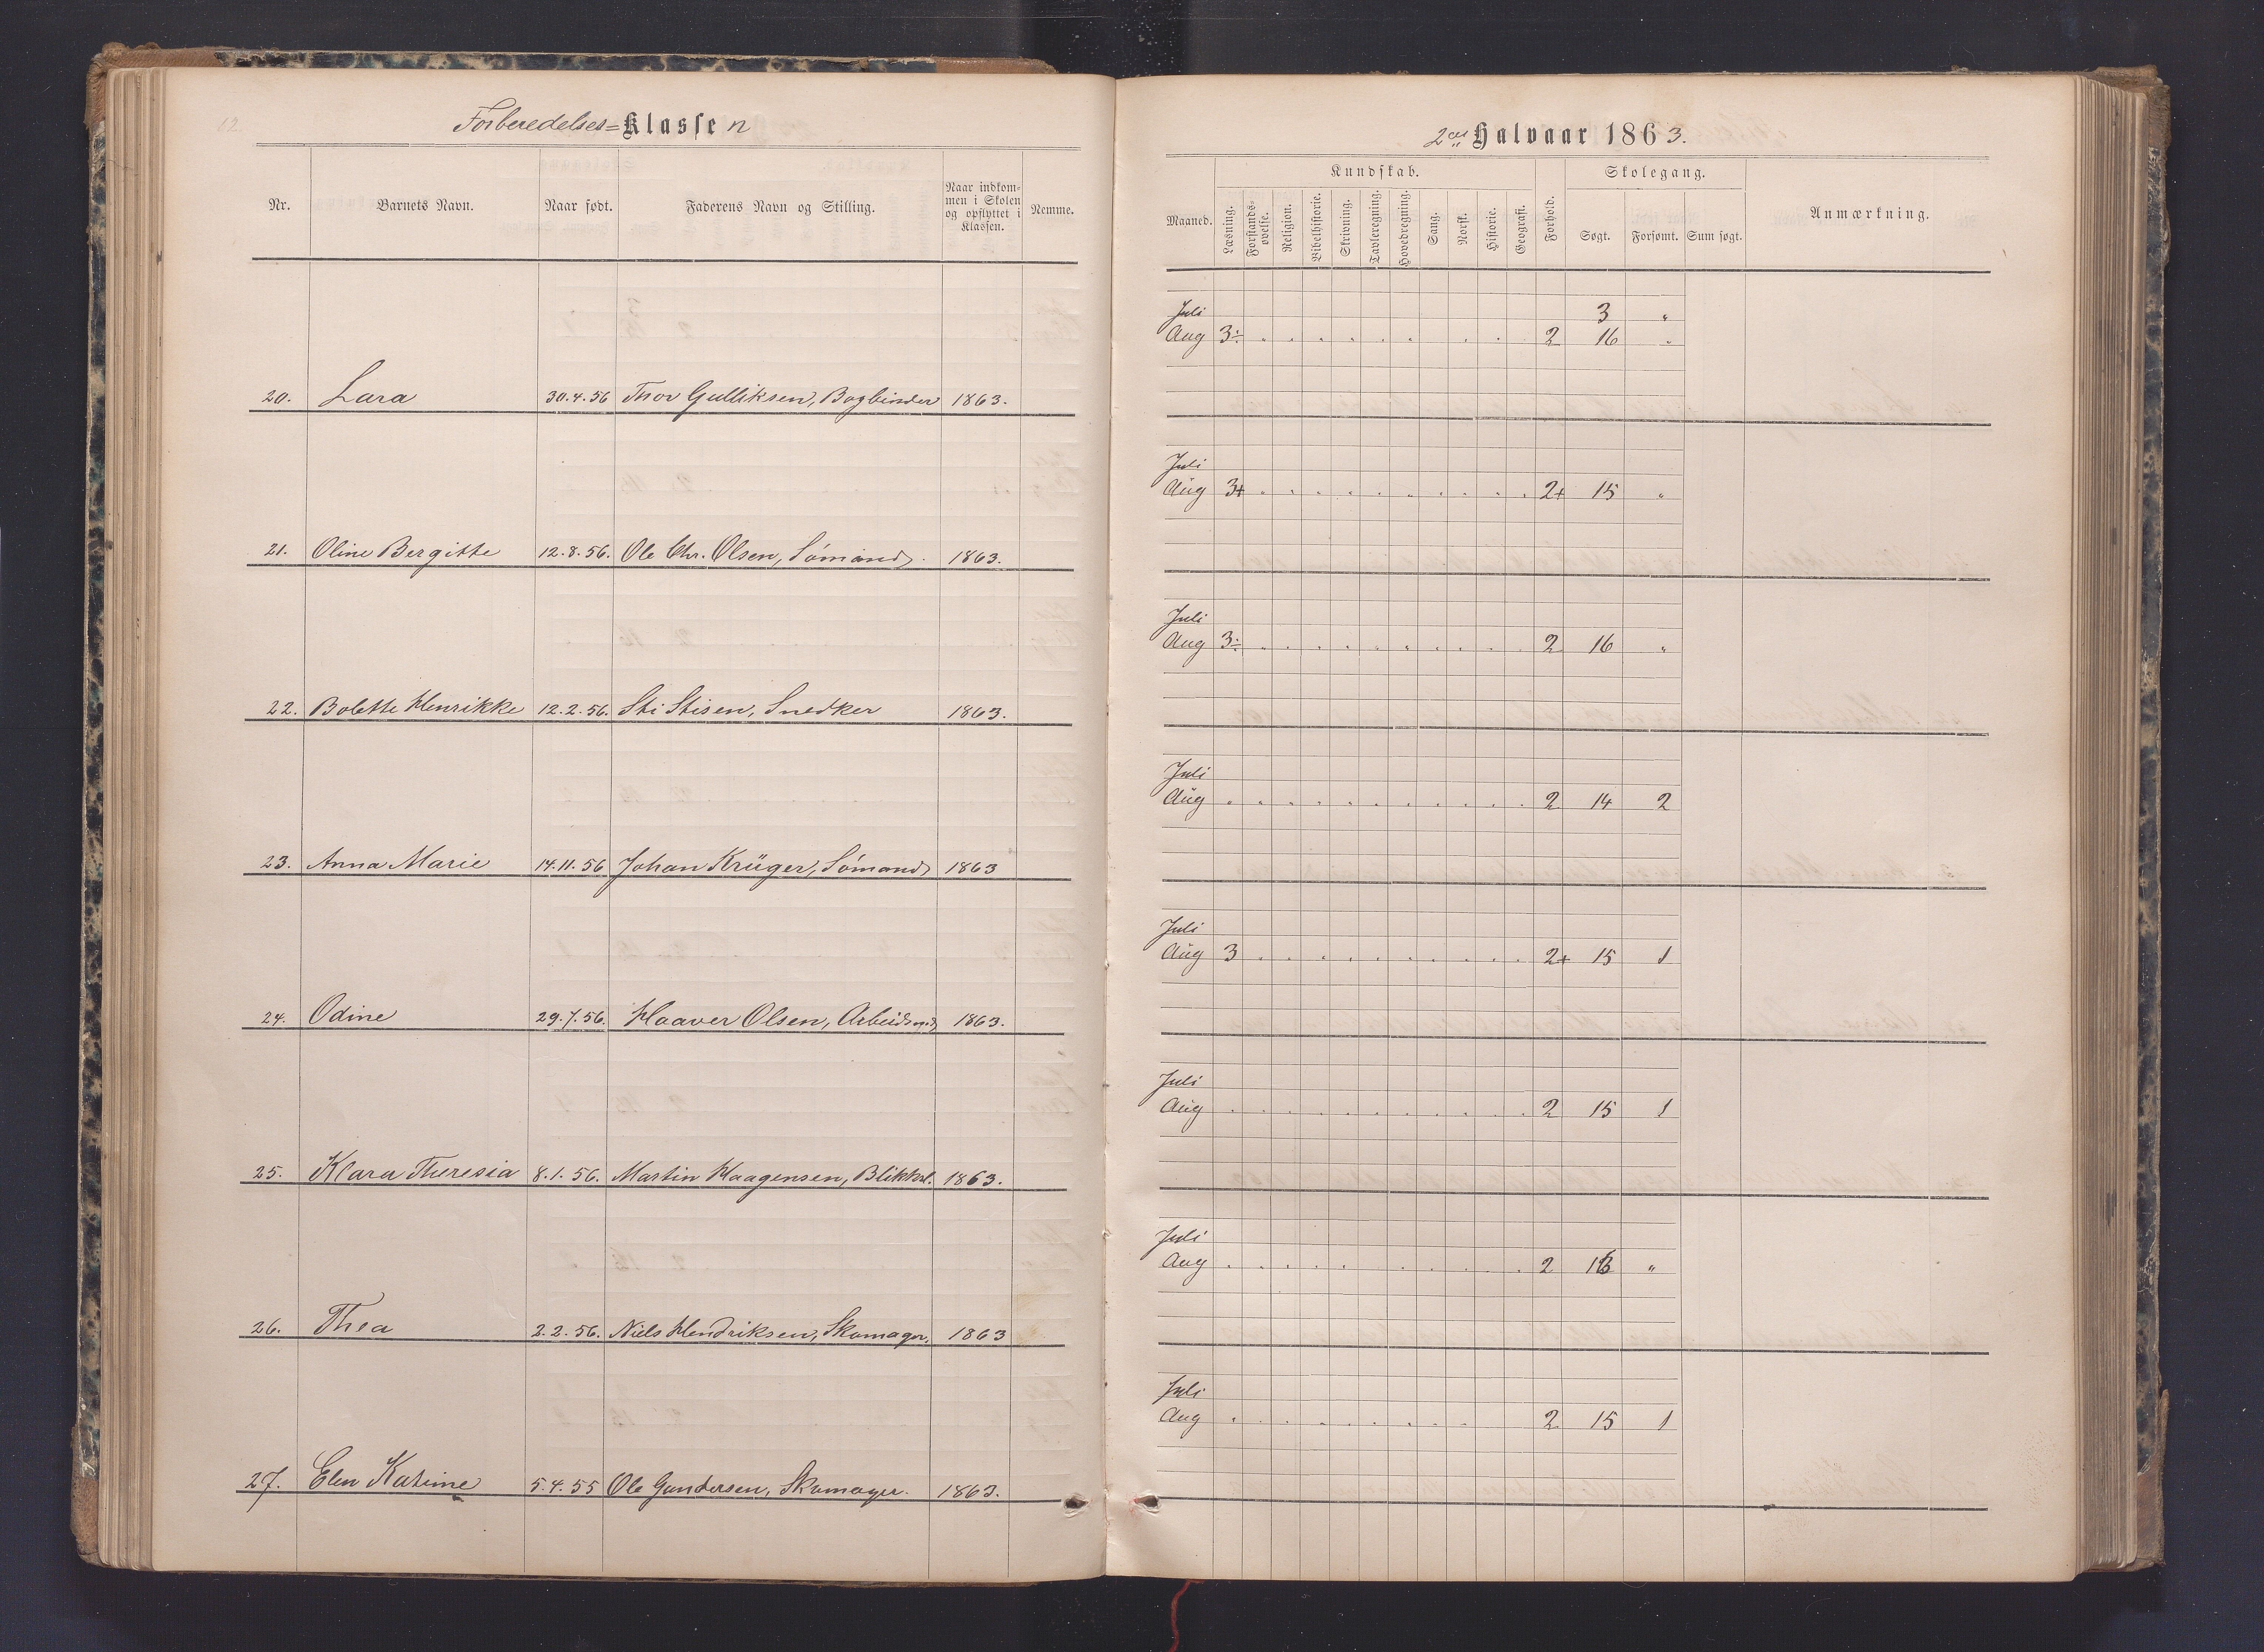 Forberedelses=Klassen
Nr.
Barnets Navn.
Naar født.
Faderens Navn og Stilling.
Naar indkom-
men i Skolen
og opflyttet i
Klassen.
Nemme.
20. Lara 30.4.56 Thor Gulliksen, Bogbinder 1863.
21. Oline Bergitte 12.8.56. Ole Chr. Olsen, Sømand. 1863.
22. Bolette Henrikke 12.2.56. Sti Stisen, Snedker 1863.
23. Anna Marie 14.11.56 Johan Krüger, Sømand 1863
24. Odine 29.7.56. Haaver Olsen, Arbeidsmd 1863.
25. Klara Theresia 8.1.56. Martin Haagensen, Blikksl. 1863.
26. Thea 2.2.56. Niels Hendriksen, Skomager. 1863
27. Elen Katrine 5.4.55 Ole Gundersen, Skomager. 1863.
2det Halvaar 1863.
Maaned.
Kundskab.
Læsning.
Forstands-
øvelse.
Religion.
Bibelhistorie.
Skrivning.
Tavleregning.
Hovedregning.
Sang.
Norsk.
Historie.
Geografi.
Forhold.
Skolegang.
Søgt.
Forsømt.
Sum søgt.
Anmærkning.
Juli 3 "
Aug 3÷ . . . . . . . . 2 16 "
Juli
Aug 3+ . . . . . . . . . . 2+ 15 "
Juli
Aug 3÷ . . . . . . . . . . 2 16 "
Juli
Aug . . . . . . . . . . . 2 14 2
Juli
Aug 3 . . . . . . . . . . 2+ 15 1
Juli
Aug . . . . . . . . . . . 2 15 1
Juli
Aug . . . . . . . . . . 2 16 "
Juli
Aug . . . . . . . . . 2 15 1